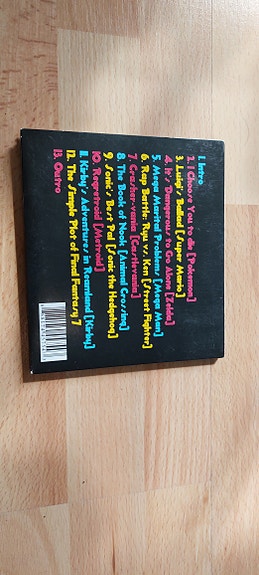 1. Intro
2. I Choose You to die [Pokemon]
3. Luigi's Ballad [Super Mario]
4. It's Dangerous to Go Alone [Zelda]
5. Mega Marital Problems [Mega Man]
6. Rap Battle: Ryu vs. Ken [Street Fighter]
7. Crasher-vania [Castlevania]
8. The Book of Nook [Animal Crossing]
9. Sonic's Best Pal [Sonic the Hedgehog]
10. Regretroid [Metroid]
11. Kirby's Adventures in Reamland [Kirby]
12. The Simple Plot of Final Fantasy 7
13. Outro